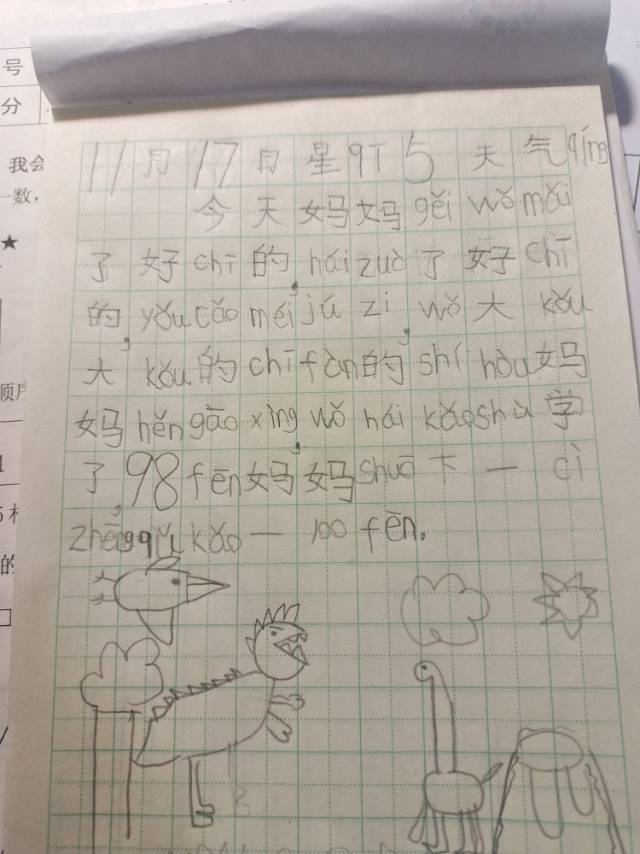 号
分
我会
数，
★
11月17月星qī5天气qíng
今天妈妈gěi wǒ mǎi
了好chī的，hái zuò了好chī
的，yǒu cǎo méi jú zi，wǒ大kǒu
大kǒu的chī fàn的shí hòu妈
妈hěn gāo xìng，wǒ hái kǎo shù学
了，98fēn妈妈shuō下一cì
zhēng qǔ kǎo一100fēn.
的